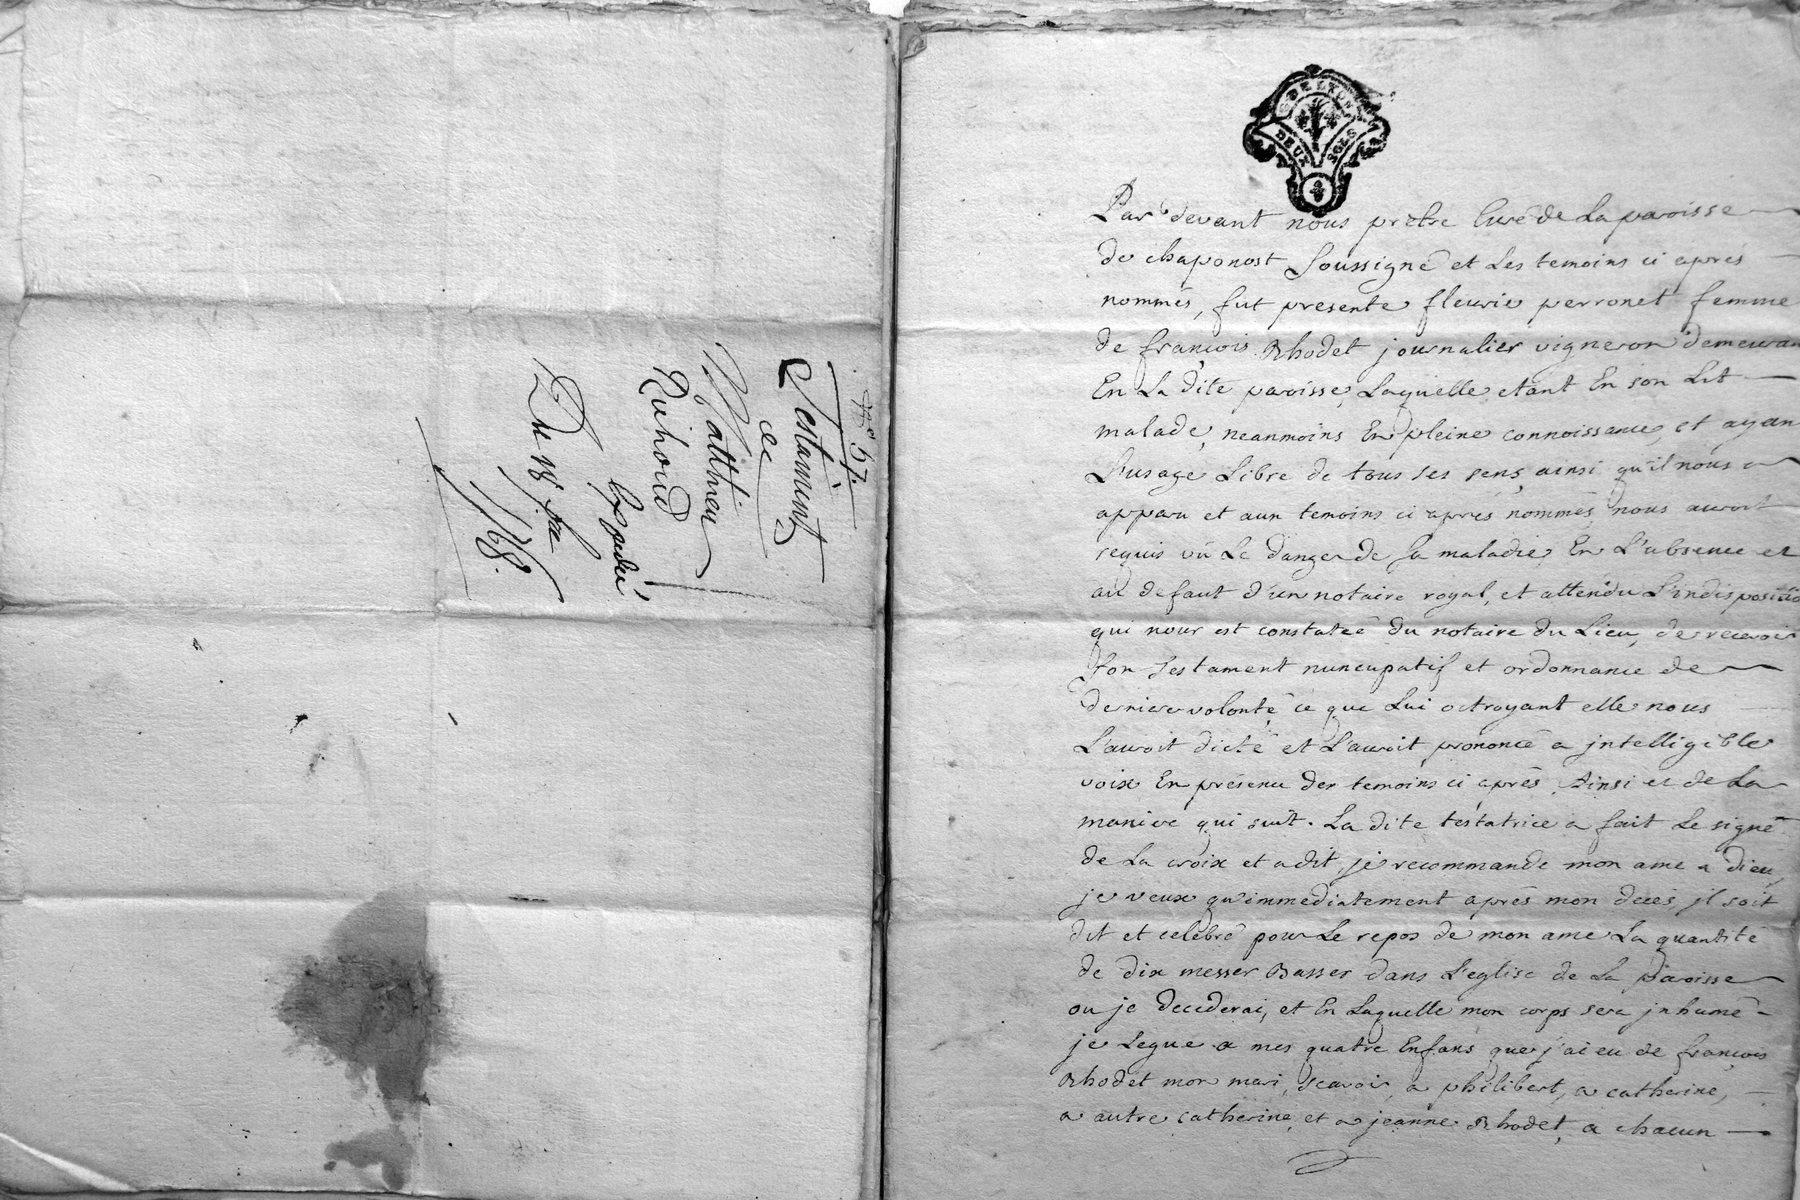 N.° 57.
Testament
de
Matthieu
Rihoud
Expedié
Du 18 fre
1768.
G. DE LYON
DEUX SOLS
Par devant nous prêtre Curé de La paroisse
de chaponost Soussigné et Les temoins ci aprés
nommés, fut presente fleurie perronet femme
de francois Rhodet journalier vigneron demeuran
En La dite paroisse, Laquelle etant En son Lit
malade, neanmoins En pleine connoissance, et ayan
L'usage Libre de tous ses sens, ainsi qu'il nous a
apparu et aux temoins ci aprés nommés nous auroit
requis vû Le danger de sa maladie, En L'absence et
au defaut d'un notaire royal, et attendu L'indispositio
qui nous est constatée du notaire du Lieu, de recevoir
son testament nuncupatif et ordonnance de
derniere volonté ce que Lui octroyant elle nous
L'auroit dicté et L'auroit prononcé a jntelligible
voix En présence des temoins ci aprés Ainsi et de La
maniere qui suit. La dite testatrice a fait Le signe
de La croix et a dit, je recommande mon ame a dieu,
je veux qu'immediatement aprés mon decés, jl soit
dit et celebré pour Le repos de mon ame La quantité
de dix messes Basses dans L'eglise de La paroisse
ou je decederai, et En Laquelle mon corps sera jnhumé
je Legue a mes quatre Enfans que j'ai eu de francois
Rhodet mon mari, scavoir, a philibert, a catherine,
a autre catherine, et a jeanne Rhodet, a chacun